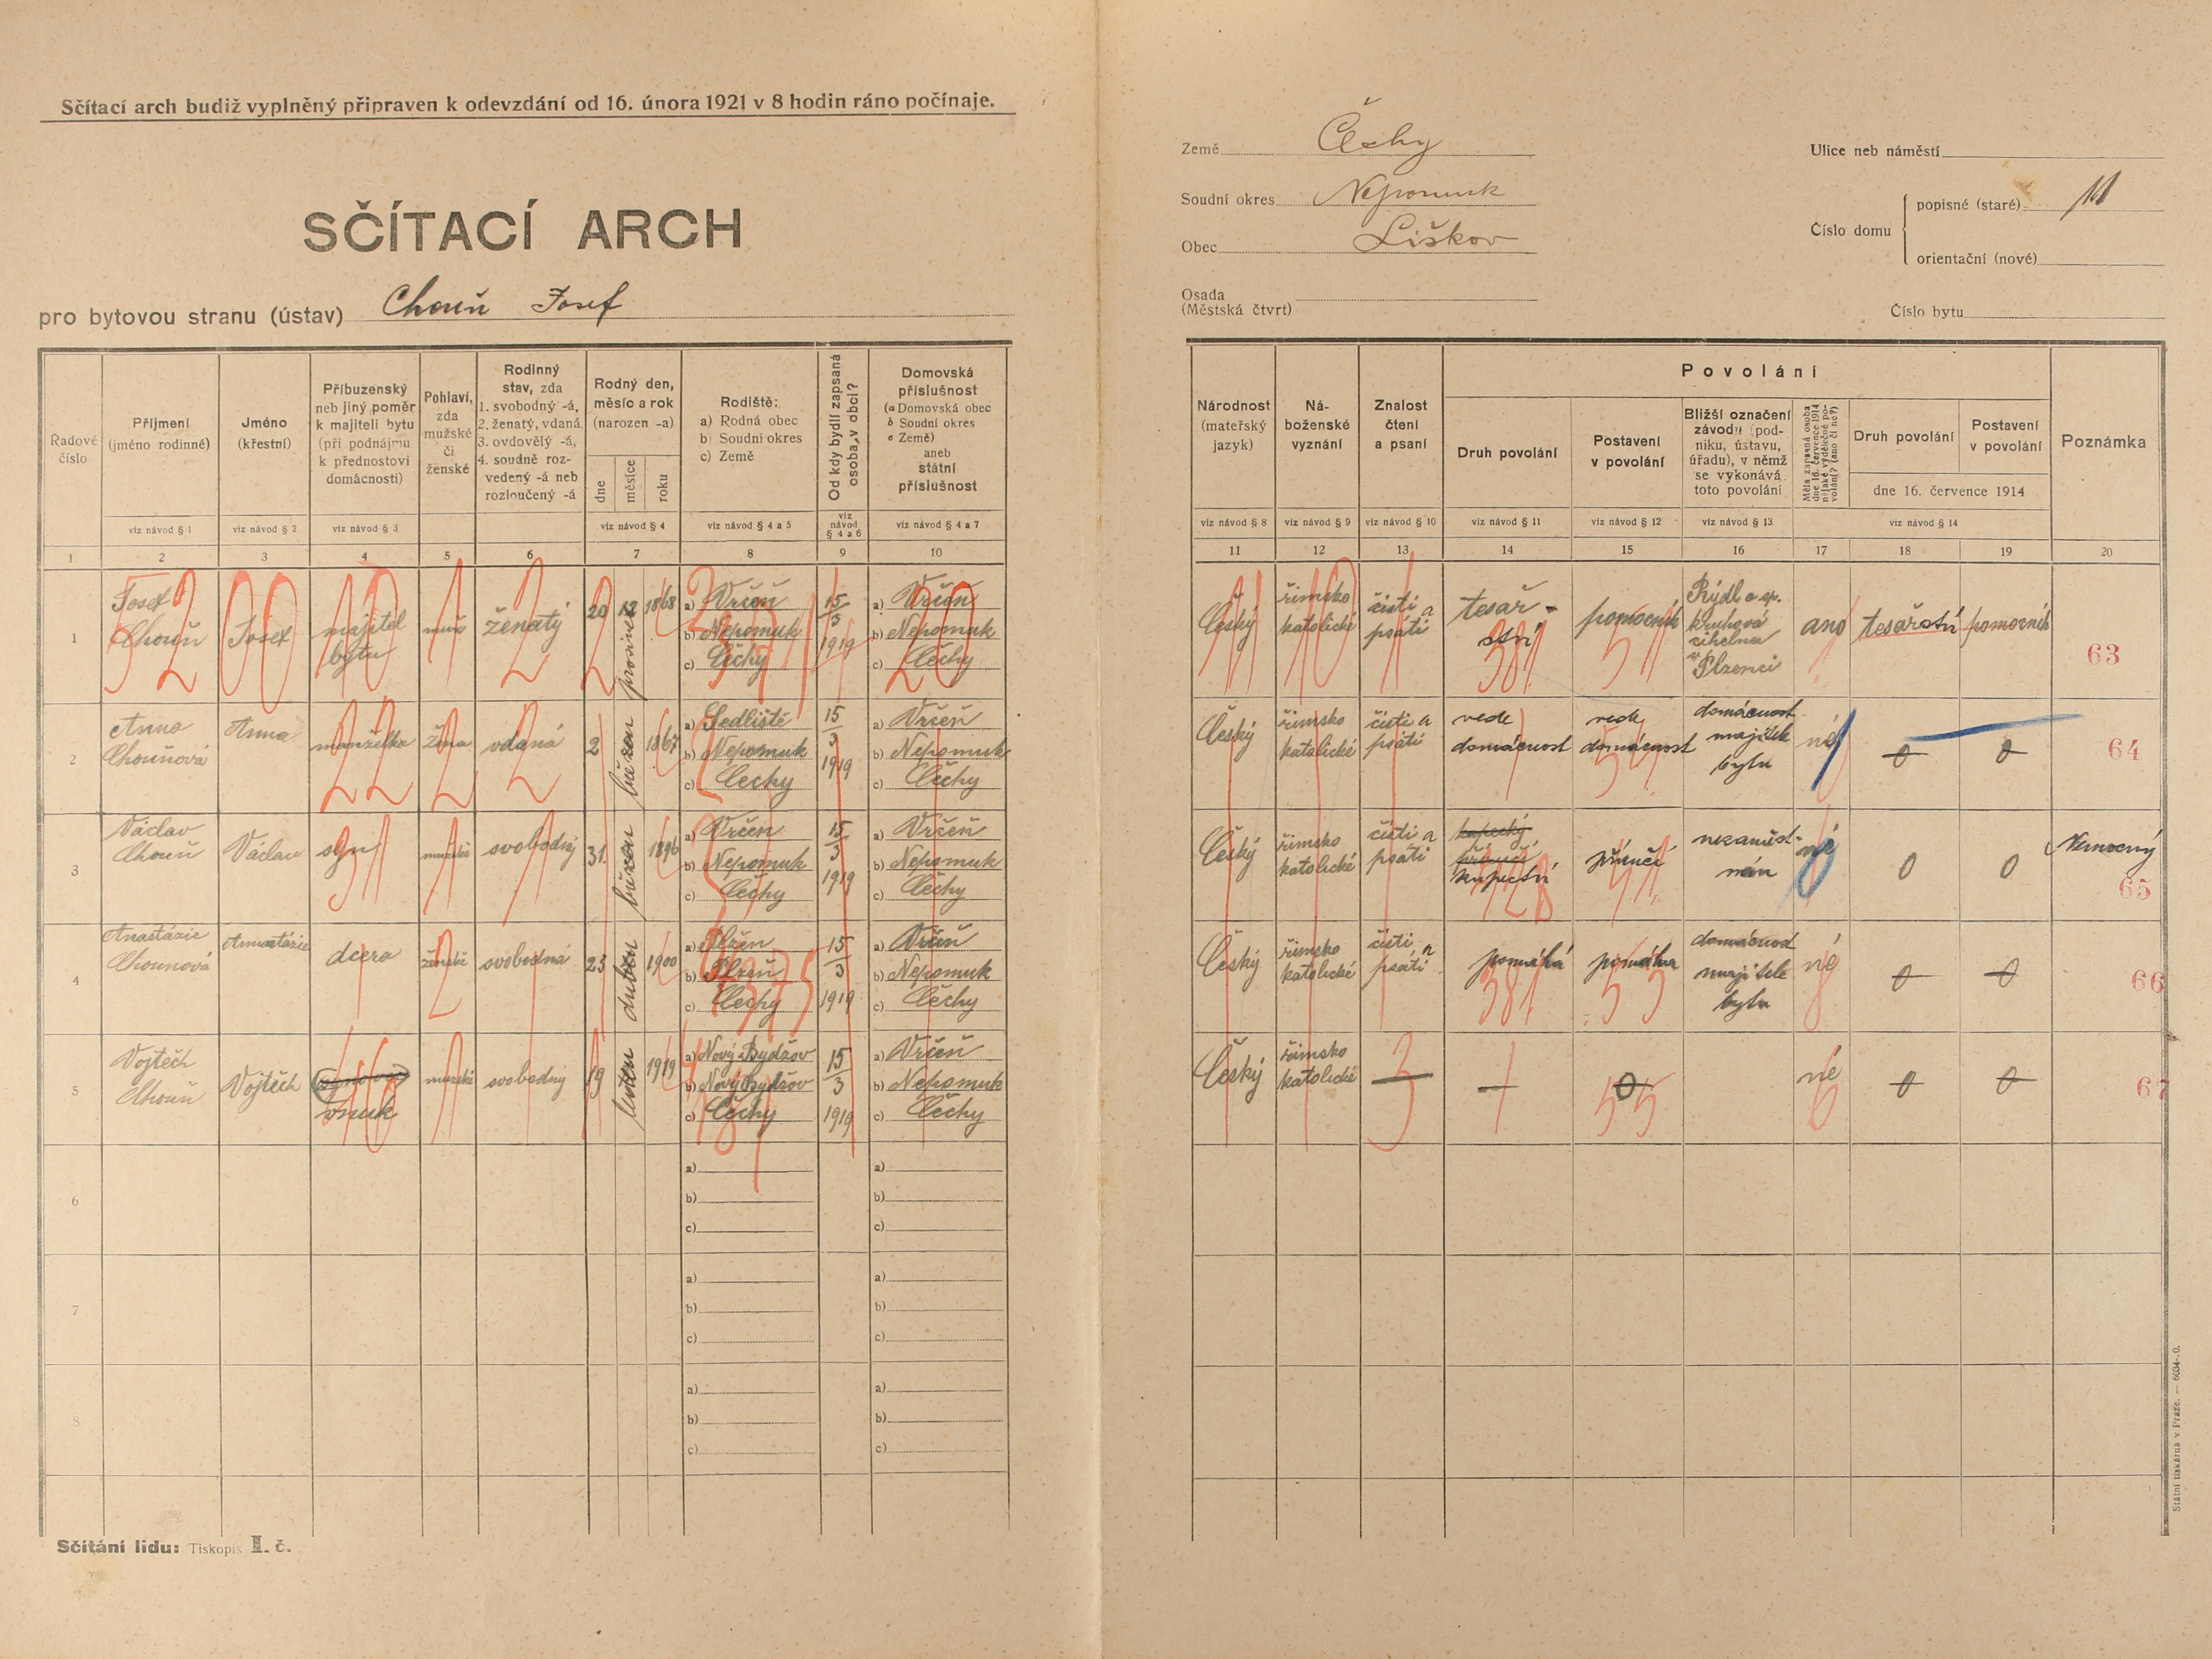 Sčítací arch budiž vyplněný připraven k odevzdání od 16. února 1921 v 8 hodin ráno počínaje.
SČÍTACÍ ARCH
pro bytovou stranu (ústav) Chouň Josef
Země Čechy
Soudní okres Nepomuk
Obec Liškov
Osada
(Městská čtvrt)
Ulice neb náměstí
Číslo domu
popisné (staré) 11
orientační (nové)
Číslo bytu
Řadové číslo
Příjmení (jméno rodinné)
Jméno (křestní)
Příbuzenský neb jiný poměr k majiteli bytu (při podnájmu k přednostovi domácnosti)
Pohlaví, zda mužské či ženské
Rodinný stav, zda 1. svobodný -á, 2. ženatý, vdaná 3. ovdovělý -á, 4. soudně rozvedený -á neb rozloučený -á
Rodný den, měsíc a rok (narozen -a)
dne měsíce roku
Rodiště: a) Rodná obec b) Soudní okres c) Země
Od kdy bydlí zapsaná osoba v obci?
Domovská příslušnost (a Domovská obec b Soudní okres c Země) aneb státní příslušnost
viz návod § 1
viz návod § 2
viz návod § 3
viz návod § 4
viz návod § 4 a 5
viz návod § 4 a 6
viz návod § 4 a 7
1 2 3 4 5 6 7 8 9 10
Národnost (mateřský jazyk)
Náboženské vyznání
Znalost čtení a psaní
Povolání
Druh povolání
Postavení v povolání
Bližší označení závodu (podniku, ústavu, úřadu), v němž se vykonává toto povolání
Měla zapsaná osoba dne 16. července 1914 nějaké výdělečné povolání? (ano či ne?)
Druh povolání
Postavení v povolání
dne 16. července 1914
Poznámka
viz návod § 8
viz návod § 9
viz návod § 10
viz návod § 11
viz návod § 12
viz návod § 13
viz návod § 14
11 12 13 14 15 16 17 18 19 20
1 Josef Chouň Josef majitel bytu muž ženatý 20 12 prosinec 1868 a) Vrčeň b) Nepomuk c) Čechy 15/3 1919 a) Vrčeň b) Nepomuk c) Čechy
Český římsko katolické čísti a psáti tesař-ství pomocník Rýdl a sp. kruhová cihelna v Plzenci ano tesařství pomocník 63
2 Anna Chouňová Anna manželka žena vdaná 2 březen 1867 a) Sedliště b) Nepomuk c) Čechy 15/3 1919 a) Vrčeň b) Nepomuk c) Čechy
Český římsko katolické čísti a psáti vede domácnost vede domácnost domácnost majitele bytu né 0 0 64
3 Václav Chouň Václav syn mužské svobodný 31. březen 1896 a) Vrčen b) Nepomuk c) Čechy 15/3 1919 a) Vrčeň b) Nepomuk c) Čechy
Český římsko katolické čísti a psáti kupecký příručí kupectví příručí nezaměst-nán né 0 0 Nemocný 65
4 Anastázie Chounová Annastázie dcera ženské svobodná 23 duben 1900 a) Plzen b) Plzeň c) Čechy 15/3 1919 a) Vrčeň b) Nepomuk c) Čechy
Český římsko katolické čísti a psáti pomáhá pomáha domácnost majitele bytu né 0 0 66
5 Vojtěch Chouň Vojtěch vnuk mužské svobodný 19 1919 a) Nový Bydžov b) Nový Bydžov c) Čechy 15/3 1919 a) Vrčeň b) Nepomuk c) Čechy
Český římsko katolické — — 0 né 0 0 67
6 a) b) c) a) b) c)
7 a) b) c) a) b) c)
8 a) b) c) a) b) c)
Sčítání lidu: Tiskopis II. č.
Státní tiskárna v Praze. — 6034-.0.